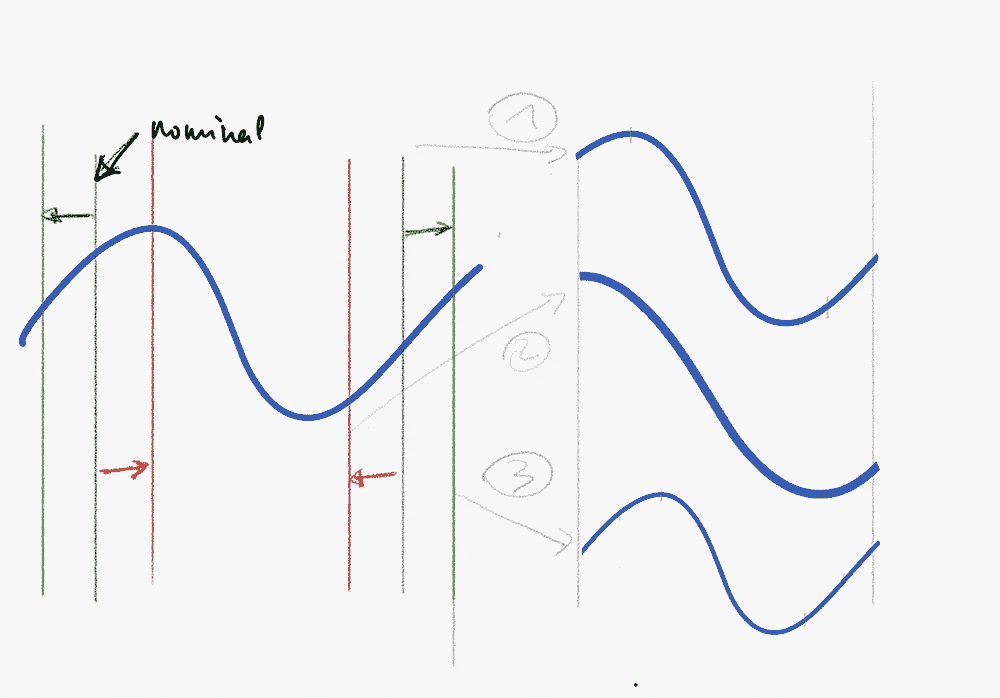 nominal
1
2
3